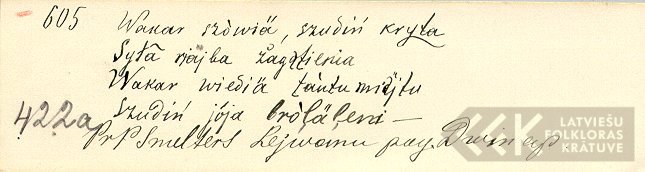 605
Wakar szòwiä, szudiń kryta
Syłâ rajba żagłtienia
Wakar wiediä tàutu mièjtu
422a
szudiń jója bròlàleni —
Pr P Smelters Lejwànu pag. Dwin ap.
LATVIEŠU
FOLKLORAS
KRĀTUVE